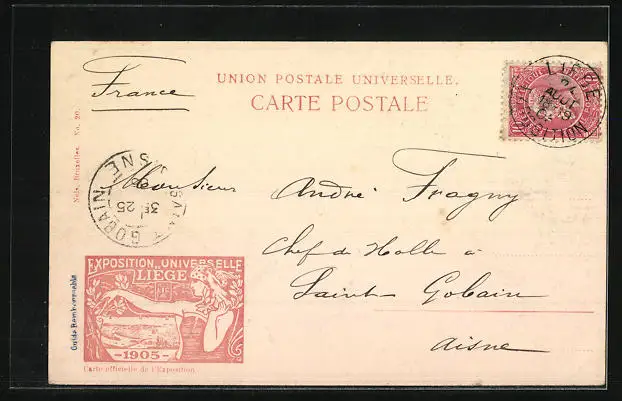 France
UNION POSTALE UNIVERSELLE.
CARTE POSTALE
LIEGE
AOUT
EXPOSITION
Nels, Bruxelles. No. 20.
SAINT-GOBAIN
AISNE
3E 25
Monsieur André Fragny
Chef de Halle à
Saint-Gobain
Aisne
EXPOSITION UNIVERSELLE
LIEGE
-1905-
Carte officielle de l'Exposition.